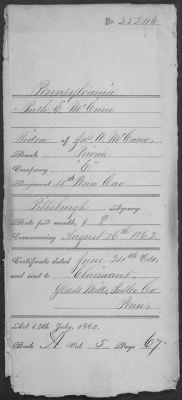 No. 22246
Pennsylvania
Ruth E. McCune
Widow of Jno. A. McCune,
Rank Private
Company "E"
Regiment 4th Penn Cav
Pittsburgh Agency
Rate per month, $ 8
Commencing August 10th 1862
Certificate dated June 24th
and sent to Claimant,
Glade Mills, Butler Co
Penn.
Act 14th July, 1862.
Book A Vol. 5 Page 67.